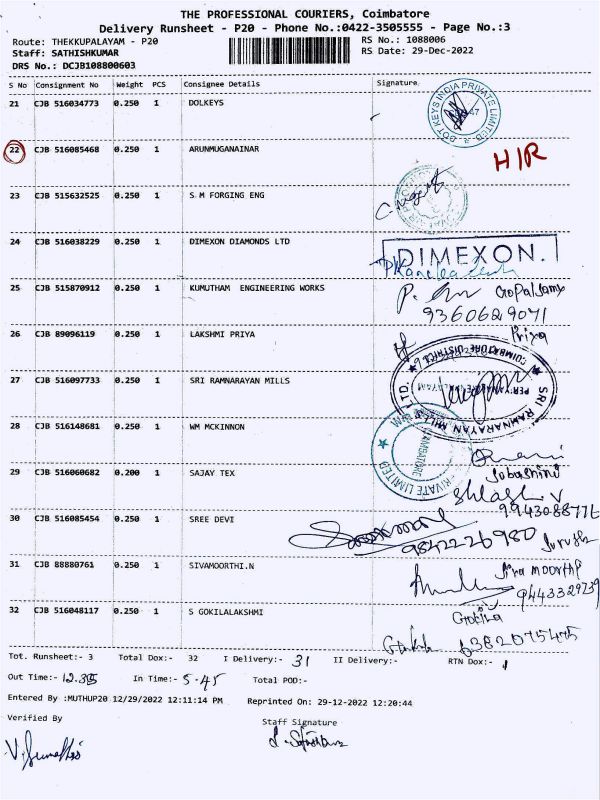 THE PROFESSIONAL COURIERS, Coimbatore
Delivery Runsheet - P20 - Phone No.:0422-3505555 - Page No.:3
Route: THEKKUPALAYAM - P20
RS No.: 1088006
Staff: SATHISHKUMAR
RS Date: 29-Dec-2022
DRS No.: DCJB108800603
S No Consignment No Weight PCS Consignee Details Signature
21 CJB 516034773 0.250 1 DOLKEYS
22 CJB 516085468 0.250 1 ARUNMUGANAINAR H/R
23 CJB 515632525 0.250 1 S M FORGING ENG
24 CJB 516038229 0.250 1 DIMEXON DIAMONDS LTD DIMEXON.
25 CJB 515870912 0.250 1 KUMUTHAM ENGINEERING WORKS
GopalSamy
9360629071
26 CJB 89096119 0.250 1 LAKSHMI PRIYA Priya
27 CJB 516097733 0.250 1 SRI RAMNARAYAN MILLS
SRI RAMNARAYAN MILLS LTD. COIMBATORE DISTRICT
28 CJB 516148681 0.250 1 WM MCKINNON
PRIVATE LIMITED
29 CJB 516060682 0.200 1 SAJAY TEX
9943088776
30 CJB 516085454 0.250 1 SREE DEVI
9842226980
31 CJB 88880761 0.250 1 SIVAMOORTHI.N
Siva MOORTHP
32 CJB 516048117 0.250 1 S GOKILALAKSHMI
Gokila
6382075475
Tot. Runsheet:- 3 Total Dox:- 32 I Delivery:- 31 II Delivery:- RTN Dox:- 1
Out Time:- 12.35 In Time:- 5.45 Total POD:-
Entered By :MUTHUP20 12/29/2022 12:11:14 PM Reprinted On: 29-12-2022 12:20:44
Verified By Staff Signature